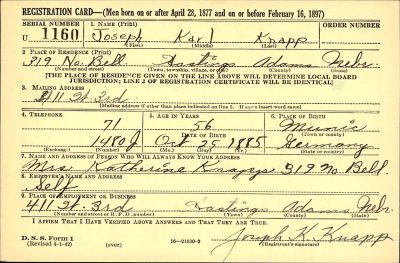 REGISTRATION CARD—(Men born on or after April 28, 1877 and on or before February 16, 1897)
SERIAL NUMBER 1. NAME (Print)
U 1160 Joseph Karl Knapp
(First) (Middle) (Last)
2. PLACE OF RESIDENCE (Print)
319 No. Bell. Hastings Adams Nebr.
(Number and street) (Town, township, village, or city) (County) (State)
[THE PLACE OF RESIDENCE GIVEN ON THE LINE ABOVE WILL DETERMINE LOCAL BOARD
JURISDICTION; LINE 2 OF REGISTRATION CERTIFICATE WILL BE IDENTICAL]
3. MAILING ADDRESS
411 St. 3rd
[Mailing address if other than place indicated on line 2. If same insert word same]
4. TELEPHONE 5. AGE IN YEARS 6. PLACE OF BIRTH
71 56 Munic
DATE OF BIRTH (Town or county)
1480J Oct 25 1885 Germany
(Exchange) (Number) (Mo.) (Day) (Yr.) (State or country)
7. NAME AND ADDRESS OF PERSON WHO WILL ALWAYS KNOW YOUR ADDRESS
Mrs. Katherine Knapp 319 No Bell.
8. EMPLOYER'S NAME AND ADDRESS
Self
9. PLACE OF EMPLOYMENT OR BUSINESS
411 St. 3rd Hastings Adams Nebr.
(Number and street or R. F. D. number) (Town) (County) (State)
I AFFIRM THAT I HAVE VERIFIED ABOVE ANSWERS AND THAT THEY ARE TRUE.
D. S. S. Form 1
(Revised 4-1-42) (over) 16—21630-2 Joseph K. Knapp
(Registrant's signature)